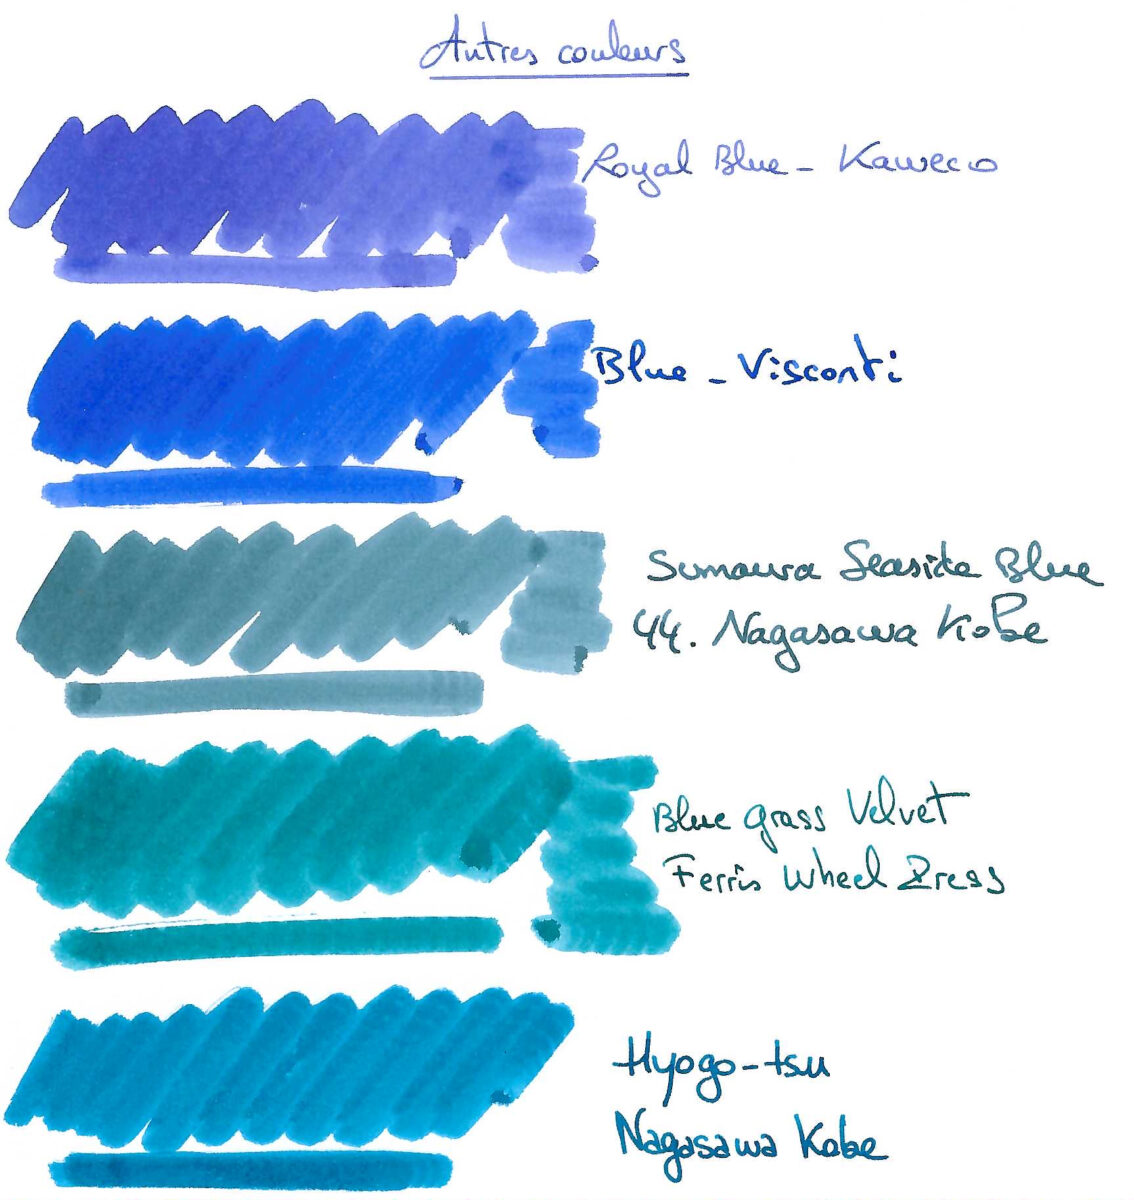 Autres couleurs
Royal Blue - Kaweco
Blue - Visconti
Sumaura Seaside Blue
44. Nagasawa Kobe
Blue grass Velvet
Ferris Wheel Press
Hyogo-tsu
Nagasawa Kobe